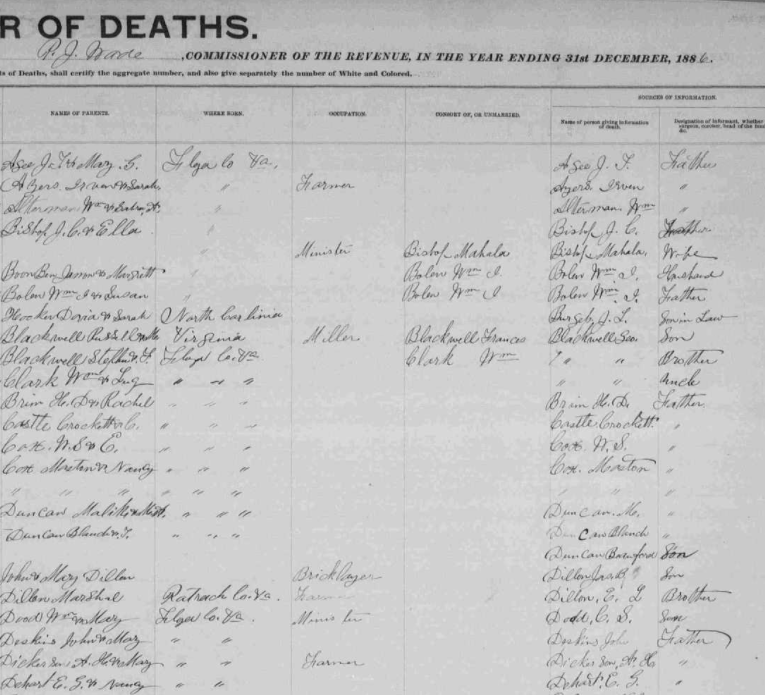 R OF DEATHS.
R. J. Wade, COMMISSIONER OF THE REVENUE, IN THE YEAR ENDING 31st DECEMBER, 1886.
ts of Deaths, shall certify the aggregate number, and also give separately the number of White and Colored.
SOURCES OF INFORMATION.
NAMES OF PARENTS. WHERE BORN. OCCUPATION. CONSORT OF, OR UNMARRIED. Name of person giving information of death. Designation of informant, whether
Agee J. T. & Mary E. Floyd Co Va. Agee J. T. Father
Agers Irven & Sarah " Farmer Agers Irven "
Alterman Wm & " Alterman Wm "
Bishop J. C. & Ella Bishop J. C. Father
" Minister Bishop Mahala Bishop Mahala, Wife
Boon Ben, " Bolen Wm I Bolen Wm I. Husband
Bolen Wm I & Susan " Bolen Wm I Bolen Wm I. Father
& Sarah North Carlinia J. L. Son in Law
Blackwell Virginia Miller Blackwell Frances Blackwell Geo. Son
Blackwell Stephen & F. Floyd Co. Va Clark Wm " " Brother
Clark Wm & " " " " " Uncle
Brim H. D. & Rachel " " " Brim H. D. Father
Castle Crockett & C. " " " Castle Crockett "
Cox W. S. & E. " " " Cox W. S. "
Cox Moreton & Nancy " " " Cox Moreton "
" " " " " " " " "
Duncan & " " " Duncan M. "
Duncan Bland & F. " " " Duncan Bland "
Duncan Son
John & Mary Dillon Bricklayer Dillon Son
Dillon Marshal Co. Va Farmer Dillon, E. L Brother
Dodd Wm & Mary Floyd Co. Va. Minister Dodd, C. S. Son
Deskins John & Mary " " Deskins Joh Father
Dickerson, A. H. & Mary " " Farmer Dickerson, A. H "
Dehart E. G. & Nancy " " Dehart E. G. "